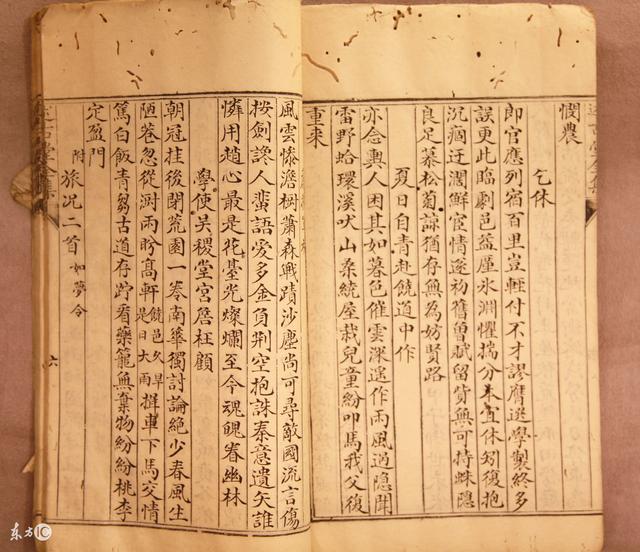 憫農
乞休
郎官應列宿百里豈輕付不才謬膺選學製終多
誤更此臨劇邑益厪氷淵懼揣分本宜休矧復抱
沉痼迂濶鮮宦情遂初舊曾賦留貲無可持蛛隱
良足慕松菊諒猶存無為妨賢路
夏日自青赴饒道中作
亦念輿人困其如暮色催雲深遙作雨風過隱聞
雷野蛤環溪吠山桑繞屋栽兒童紛叩馬我父復
重来
風雲慘澹樹蕭森戰蹟沙塵尚可尋敵國流言傷
按劍讒人蜚語愛多金負荆空抱誅秦意遺矢誰
憐用趙心最是花臺光燦爛至今魂魄眷幽林
學使吴稷堂宮詹枉顧
朝冠挂後閉荒園一卷南華獨討論絶少春風生
陋巷忽從澍雨盼髙軒饒邑久旱是日大雨擁車下馬交情
篤白飯青芻古道存跕看藥籠無棄物紛紛桃李
定盈門
附旅況二首如夢令
六
东方IC